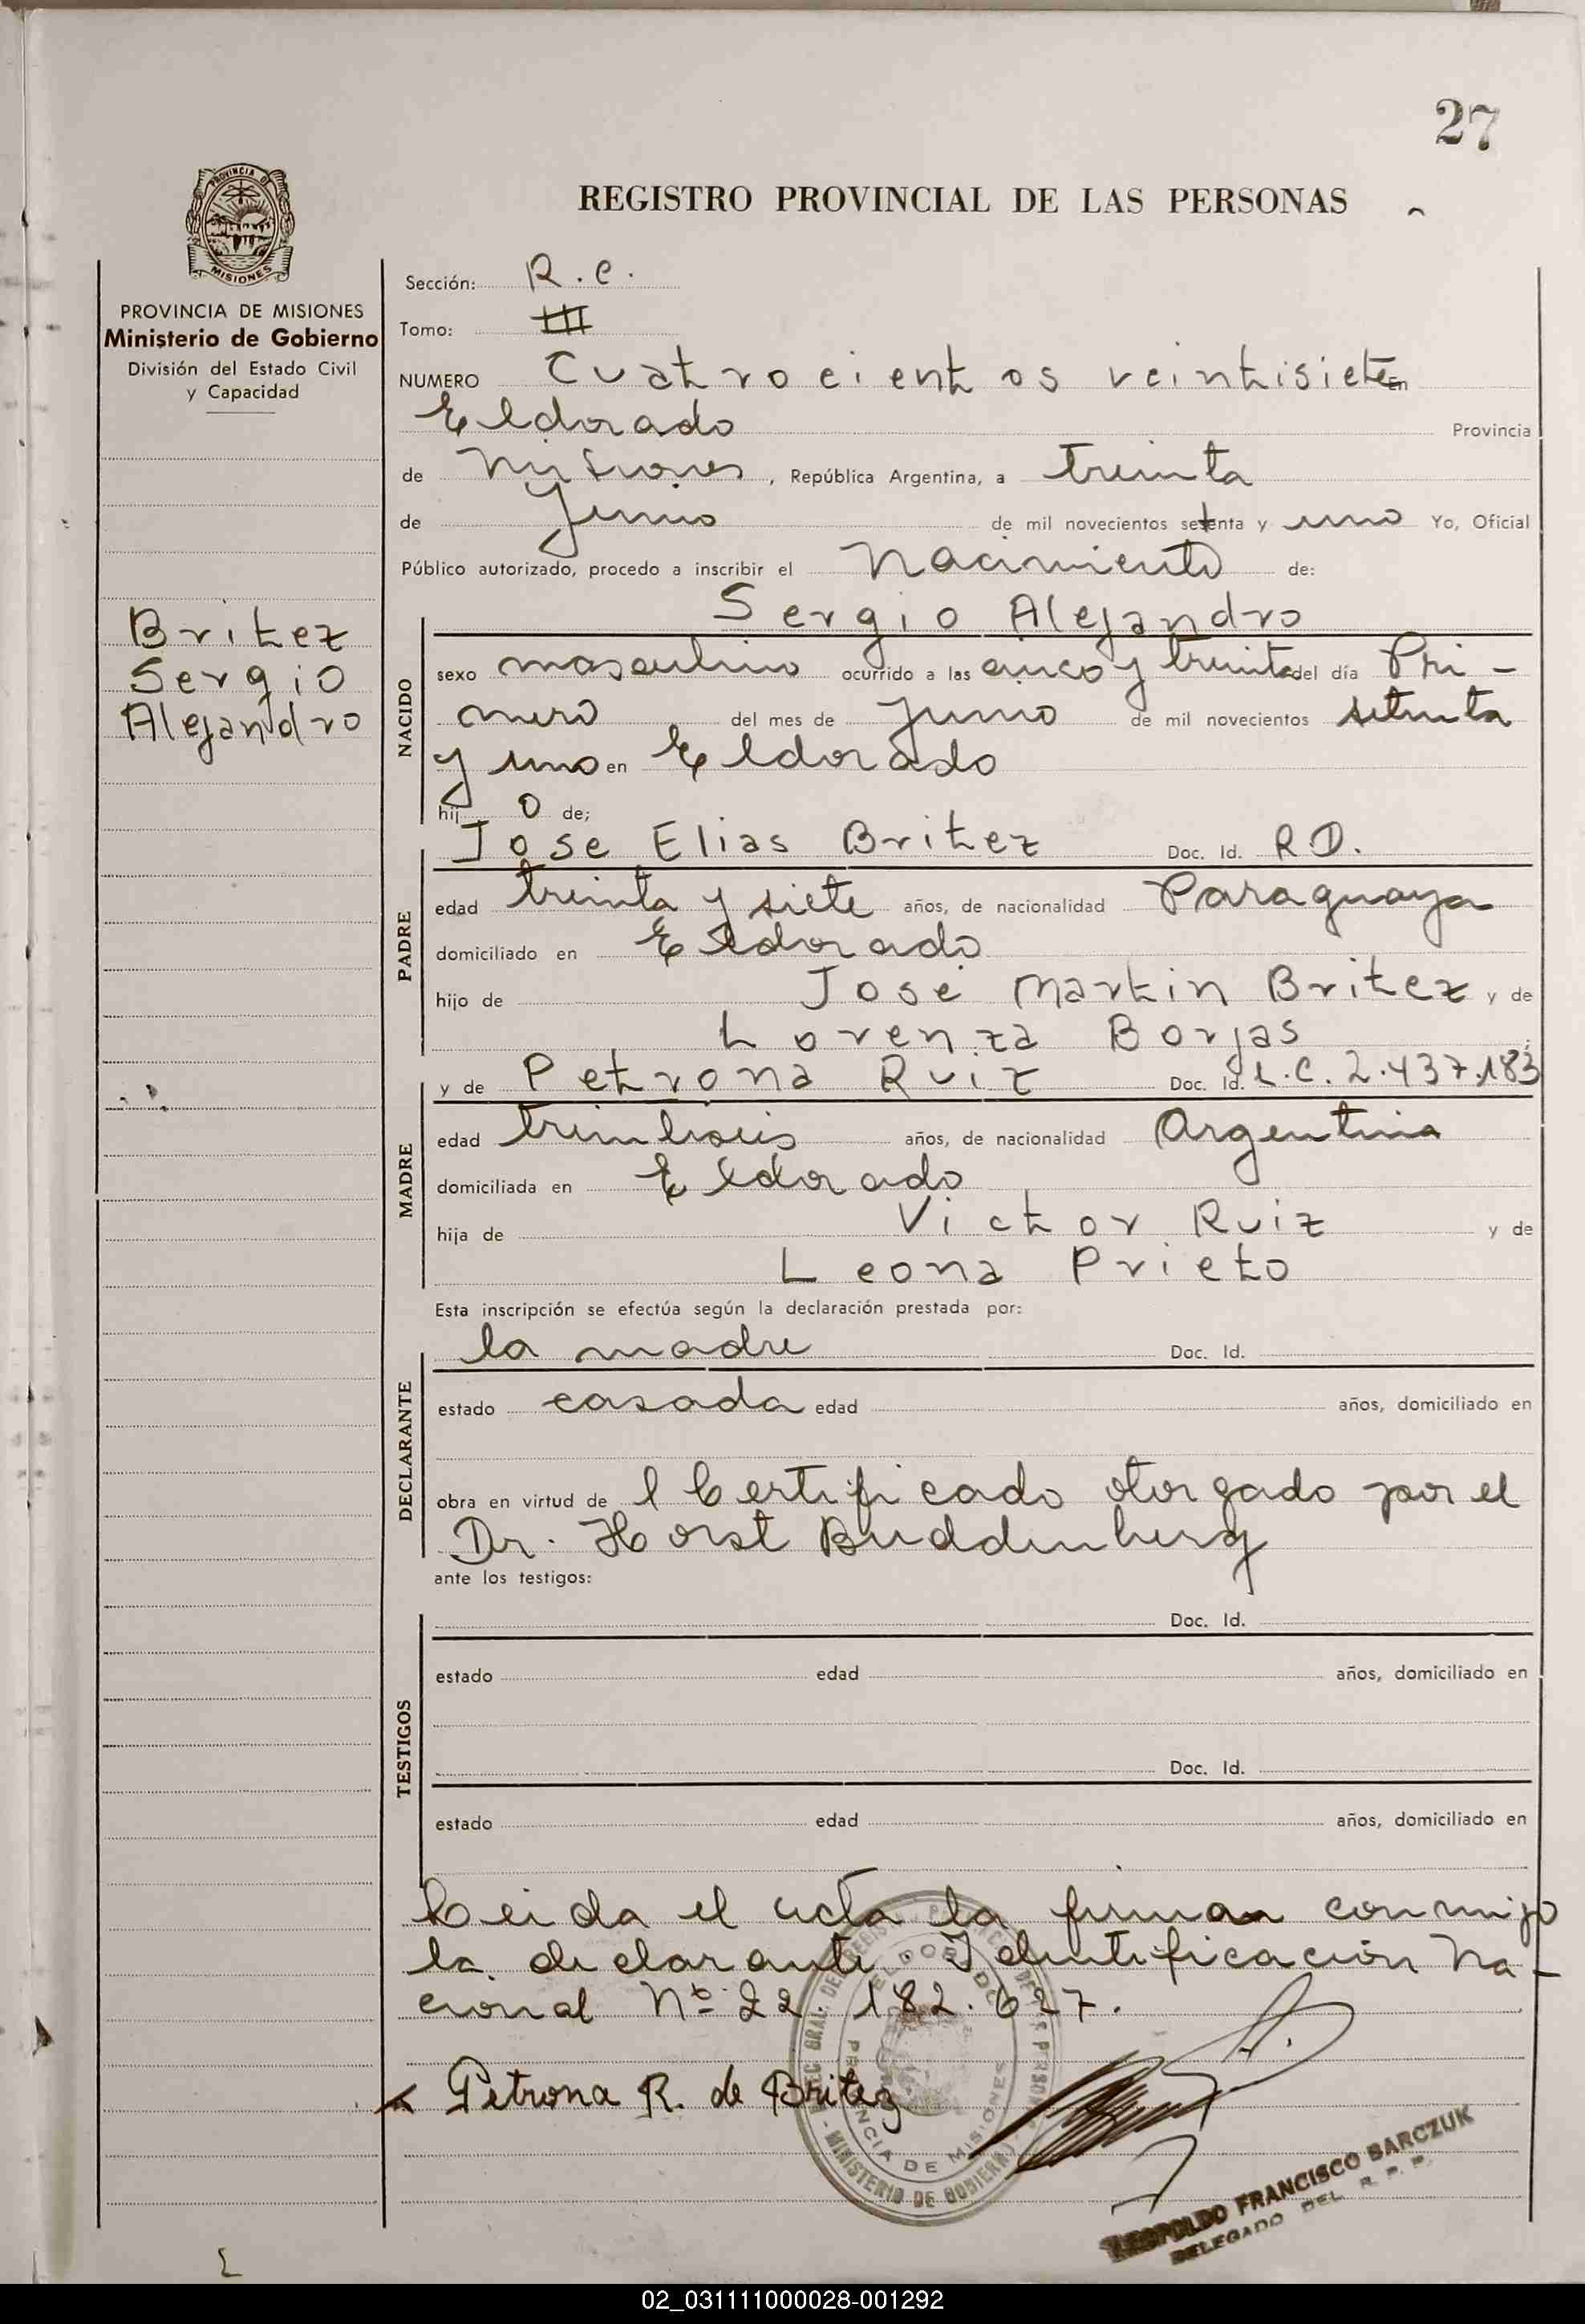 27
REGISTRO PROVINCIAL DE LAS PERSONAS
PROVINCIA DE
MISIONES
PROVINCIA DE MISIONES
Ministerio de Gobierno
División del Estado Civil
y Capacidad
Britez
Sergio
Alejandro
Sección: R.C.
Tomo: III
NUMERO Cuatrocientos veintisiete En
Eldorado Provincia
de Misiones, República Argentina, a treinta
de Junio de mil novecientos setenta y uno Yo, Oficial
Público autorizado, procedo a inscribir el Nacimiento de:
Sergio Alejandro
NACIDO
sexo masculino ocurrido a las cinco y treinta del día Pri-
mero del mes de Junio de mil novecientos setenta
y uno en Eldorado
hij o de;
Jose Elias Britez Doc. Id. R.D.
PADRE
edad treinta y siete años, de nacionalidad Paraguaya
domiciliado en Eldorado
hijo de José Martin Britez y de
Lorenza Borjas
y de Petrona Ruiz Doc. Id. L.C. 2.437.183
MADRE
edad años, de nacionalidad Argentina
domiciliada en Eldorado
hija de Victor Ruiz y de
Leona Prieto
Esta inscripción se efectúa según la declaración prestada por:
la madre Doc. Id.
DECLARANTE
estado casada edad años, domiciliado en
obra en virtud de l Certificado otorgado por el
Dr. Horst Buddenberg
ante los testigos:
Doc. Id.
TESTIGOS
estado edad años, domiciliado en
Doc. Id.
estado edad años, domiciliado en
Leida el acta la firman conmigo
la declarante Identificación Na-
cional Nº 22.182.627.
Petrona R. de Britez
PROVINCIA DE MISIONES
MINISTERIO DE GOBIERNO
LEOPOLDO FRANCISCO BARCZUK
DELEGADO DEL R. P. P.
02_031111000028-001292